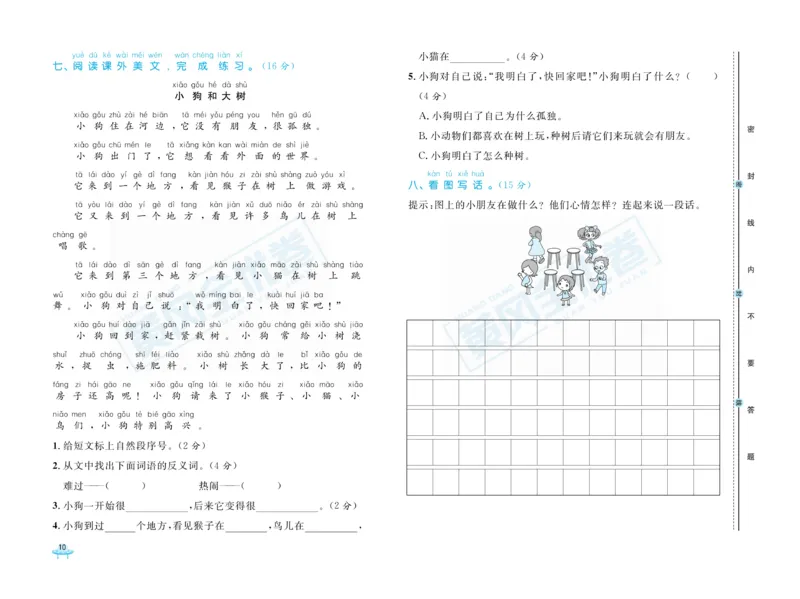 yuè dú kè wài měi wén wán chéng liàn xí
七、阅读课外美文,完成练习。(16分)
xiǎo gǒu hé dà shù
小狗和大树
xiǎo gǒu zhù zài hé biān tā méi yǒu péng you hěn gū dú
小狗住在河边,它没有朋友,很孤独。
xiǎo gǒu chū mén le tā xiǎng kàn kan wài miàn de shì jiè
小狗出门了,它想看看外面的世界。
tā lái dào yí gè dì fang kàn jiàn hóu zi zài shù shàng zuò yóu xì
它来到一个地方,看见猴子在树上做游戏。
tā yòu lái dào yí gè dì fang kàn jiàn xǔ duō niǎo ér zài shù shàng
它又来到一个地方,看见许多鸟儿在树上
chàng gē
唱歌。
tā lái dào dì sān gè dì fang kàn jiàn xiǎo māo zài shù shàng tiào
它来到第三个地方,看见小猫在树上跳
wǔ xiǎo gǒu duì zì jǐ shuō wǒ míng bai le kuài huí jiā ba
舞。小狗对自己说:“我明白了,快回家吧!”
xiǎo gǒu huí dào jiā gǎn jǐn zāi shù xiǎo gǒu cháng gěi xiǎo shù jiāo
小狗回到家,赶紧栽树。小狗常给小树浇
shuǐ zhuō chóng shī féi liào xiǎo shù zhǎng dà le bǐ xiǎo gǒu de
水,捉虫,施肥料。小树长大了,比小狗的
fáng zi hái gāo ne xiǎo gǒu qǐng lái le xiǎo hóu zi xiǎo māo xiǎo
房子还高呢!小狗请来了小猴子、小猫、小
niǎo men xiǎo gǒu tè bié gāo xìng
鸟们,小狗特别高兴。
1.给短文标上自然段序号。(2分)
2.从文中找出下面词语的反义词。(4分)
难过——( ) 热闹——( )
3.小狗一开始很____________,后来它变得很____________。(2分)
4.小狗到过______个地方,看见猴子在________,鸟儿在__________,
10
小猫在__________。(4分)
5.小狗对自己说:“我明白了,快回家吧!”小狗明白了什么?( )
(4分)
A.小狗明白了自己为什么孤独。
B.小动物们都喜欢在树上玩,种树后请它们来玩就会有朋友。
C.小狗明白了怎么种树。
kàn tú xiě huà
八、看图写话。(15分)
提示:图上的小朋友在做什么?他们心情怎样?连起来说一段话。
密
封
线
内
不
要
答
题